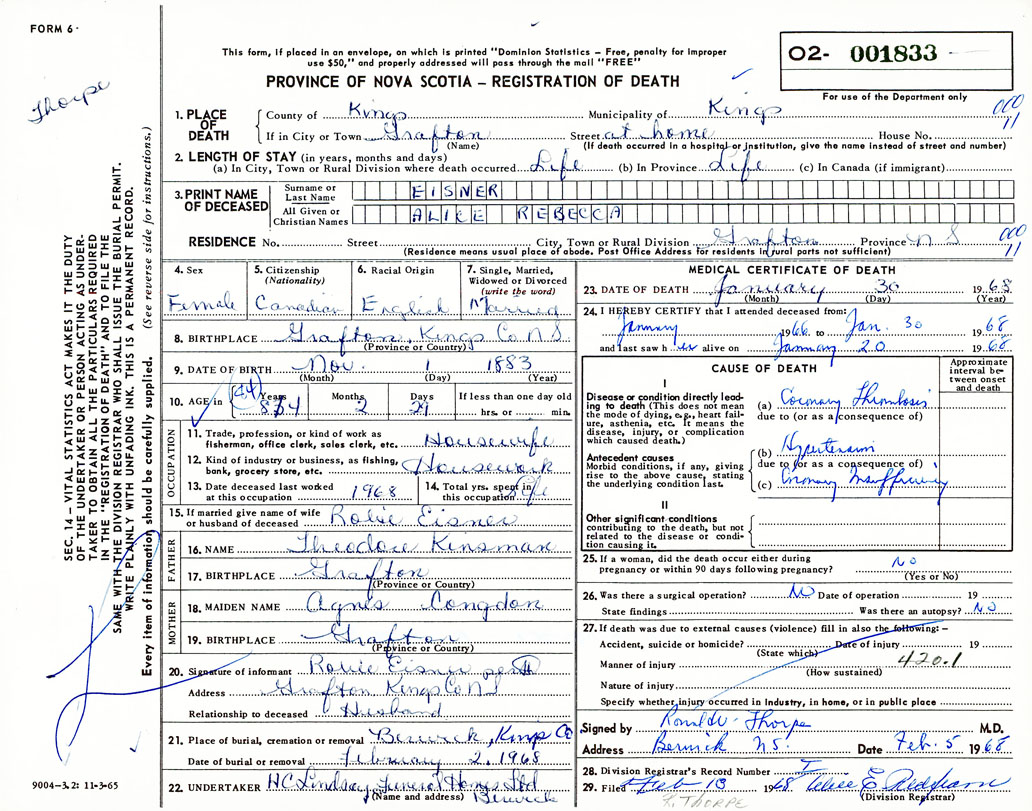 FORM 6
This form, if placed in an envelope, on which is printed "Dominion Statistics – Free, penalty for improper
use $50," and properly addressed will pass through the mail "FREE"
PROVINCE OF NOVA SCOTIA – REGISTRATION OF DEATH
02- 001833
For use of the Department only
Thorpe
000
11
1. PLACE OF DEATH
County of Kings Municipality of Kings
If in City or Town Grafton Street at home House No.
(Name) (If death occurred in a hospital or institution, give the name instead of street and number)
2. LENGTH OF STAY (in years, months and days)
(a) In City, Town or Rural Division where death occurred Life (b) In Province Life (c) In Canada (if immigrant)
3. PRINT NAME OF DECEASED
Surname or Last Name EISNER
All Given or Christian Names ALICE REBECCA
RESIDENCE No. Street City, Town or Rural Division Grafton Province N S
000
11
(Residence means usual place of abode. Post Office Address for residents in rural parts not sufficient)
4. Sex
Female
5. Citizenship
(Nationality)
Canadian
6. Racial Origin
English
7. Single, Married,
Widowed or Divorced
(write the word)
Married
8. BIRTHPLACE Grafton, Kings Co N S
(Province or Country)
9. DATE OF BIRTH Nov. 1 1883
(Month) (Day) (Year)
10. AGE in Years 84 Months 2 Days 29 If less than one day old
hrs. or min.
(84)
OCCUPATION
11. Trade, profession, or kind of work as
fisherman, office clerk, sales clerk, etc. Housewife
12. Kind of industry or business, as fishing,
bank, grocery store, etc. Housework
13. Date deceased last worked
at this occupation 1968
14. Total yrs. spent in
this occupation Life
15. If married give name of wife
or husband of deceased Robie Eisner
FATHER
16. NAME Theodore Kinsman
17. BIRTHPLACE Grafton
(Province or Country)
MOTHER
18. MAIDEN NAME Agnes Congdon
19. BIRTHPLACE Grafton
(Province or Country)
20. Signature of informant Robie Eisner per
Address Grafton Kings Co N S
Relationship to deceased Husband
21. Place of burial, cremation or removal Berwick, Kings Co
Date of burial or removal February 2, 1968
22. UNDERTAKER H C Lindsay Funeral Homes Ltd
(Name and address) Berwick
MEDICAL CERTIFICATE OF DEATH
23. DATE OF DEATH January 30 1968
(Month) (Day) (Year)
24. I HEREBY CERTIFY that I attended deceased from:
January 1966 to Jan. 30 1968
and last saw h er alive on January 20 1968
CAUSE OF DEATH
Approximate
interval be-
tween onset
and death
I
Disease or condition directly lead-
ing to death (This does not mean
the mode of dying, e.g., heart fail-
ure, asthenia, etc. It means the
disease, injury, or complication
which caused death.)
(a) Coronary Thrombosis
due to (or as a consequence of)
Antecedent causes
Morbid conditions, if any, giving
rise to the above cause, stating
the underlying condition last.
(b) Hypertension
due to (or as a consequence of)
(c) Coronary Insufficiency
II
Other significant conditions
contributing to the death, but not
related to the disease or condi-
tion causing it.
25. If a woman, did the death occur either during
pregnancy or within 90 days following pregnancy? No
(Yes or No)
26. Was there a surgical operation? No Date of operation 19
State findings Was there an autopsy? No
27. If death was due to external causes (violence) fill in also the following: –
Accident, suicide or homicide? Date of injury 19
(State which)
Manner of injury 420.1
(How sustained)
Nature of injury
Specify whether injury occurred in Industry, in home, or in public place
Signed by Ronald Thorpe M.D.
Address Berwick NS. Date Feb. 5 1968
28. Division Registrar's Record Number
29. Filed Feb 13 1968
(Division Registrar)
R. THORPE
SEC. 14 – VITAL STATISTICS ACT MAKES IT THE DUTY
OF THE UNDERTAKER OR PERSON ACTING AS UNDER-
TAKER TO OBTAIN ALL THE PARTICULARS REQUIRED
IN THE "REGISTRATION OF DEATH" AND TO FILE THE
SAME WITH THE DIVISION REGISTRAR WHO SHALL ISSUE THE BURIAL PERMIT.
WRITE PLAINLY WITH UNFADING INK. THIS IS A PERMANENT RECORD.
Every item of information should be carefully supplied. (See reverse side for instructions.)
9004-3.2: 11-3-65